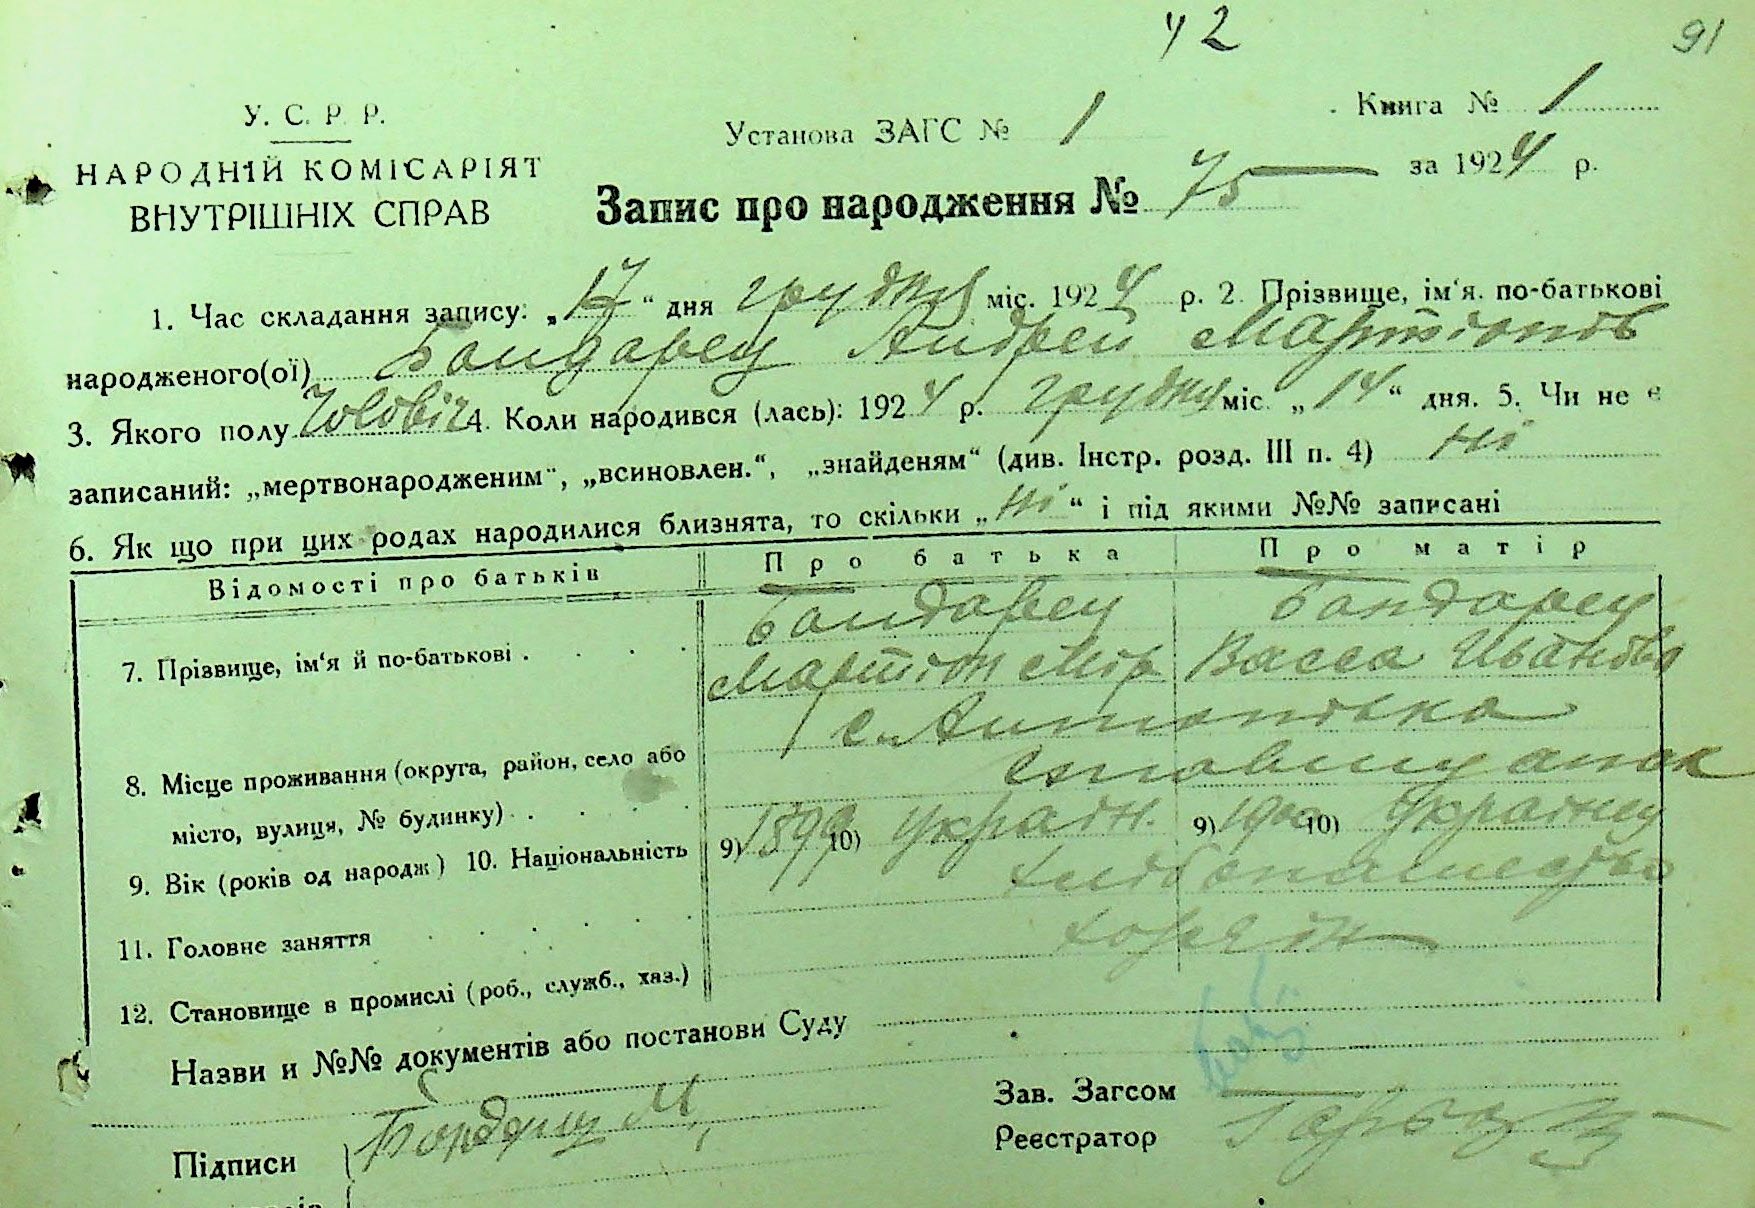 42
91
У. С. Р. Р.
НАРОДНІЙ КОМІСАРІЯТ
ВНУТРІШНІХ СПРАВ
Установа ЗАГС № 1
Книга № 1
Запис про народження № 75 за 1924 р.
1. Час складання запису: „17“ дня грудня міс. 1924 р. 2. Прізвище, ім'я. по-батькові
народженого(ої) Бондарец Андрей Мартіонов
3. Якого полу чоловіч 4. Коли народився (лась): 1924 р. грудня міс. „14“ дня. 5. Чи не є
записаний: „мертвонародженим“, „всиновлен.“, „знайденям“ (див. Інстр. розд. III п. 4) ні
6. Як що при цих родах народилися близнята, то скільки „ні“ і під якими №№ записані
Відомості про батьків Про батька Про матір
Бондарец Бондарец
7. Прізвище, ім'я й по-батькові . . . . Мартіон Васса Иванівна
с. Антонівка
8. Місце проживання (округа, район, село або
місто, вулиця, № будинку) . . .
9. Вік (років од народж) 10. Національність 9) 1899 10) Україн. 9) 10) Українц
11. Головне заняття . . . .
12. Становище в промислі (роб., служб., хаз.)
Назви и №№ документів або постанови Суду
Зав. Загсом
Підписи М.
Реєстратор